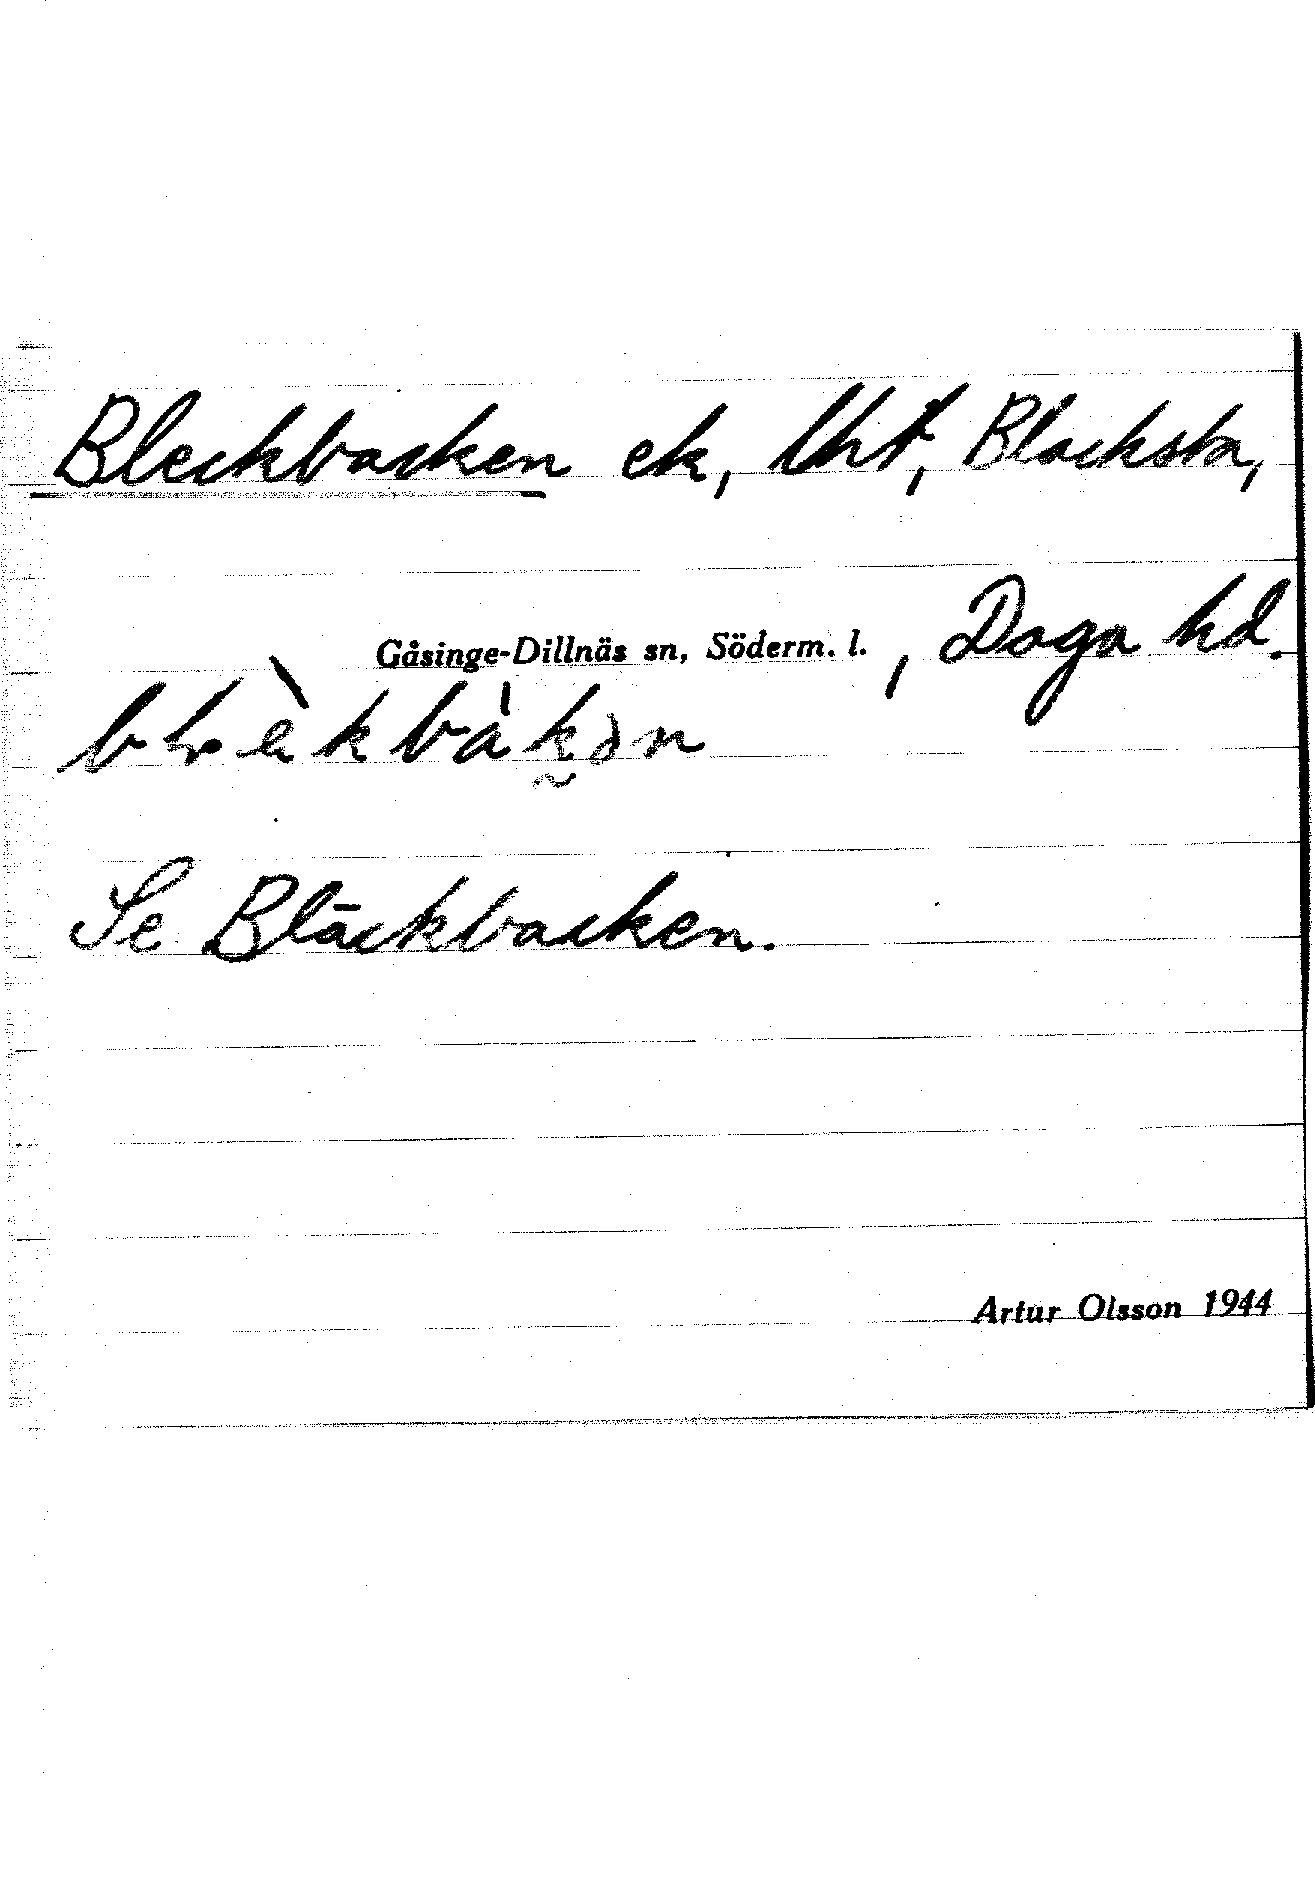 Bleckbacken ek, lht, Blacksta,
Gåsinge-Dillnäs sn, Söderm. l., Daga hd.
Se Bläckbacken.
Artur Olsson 1944